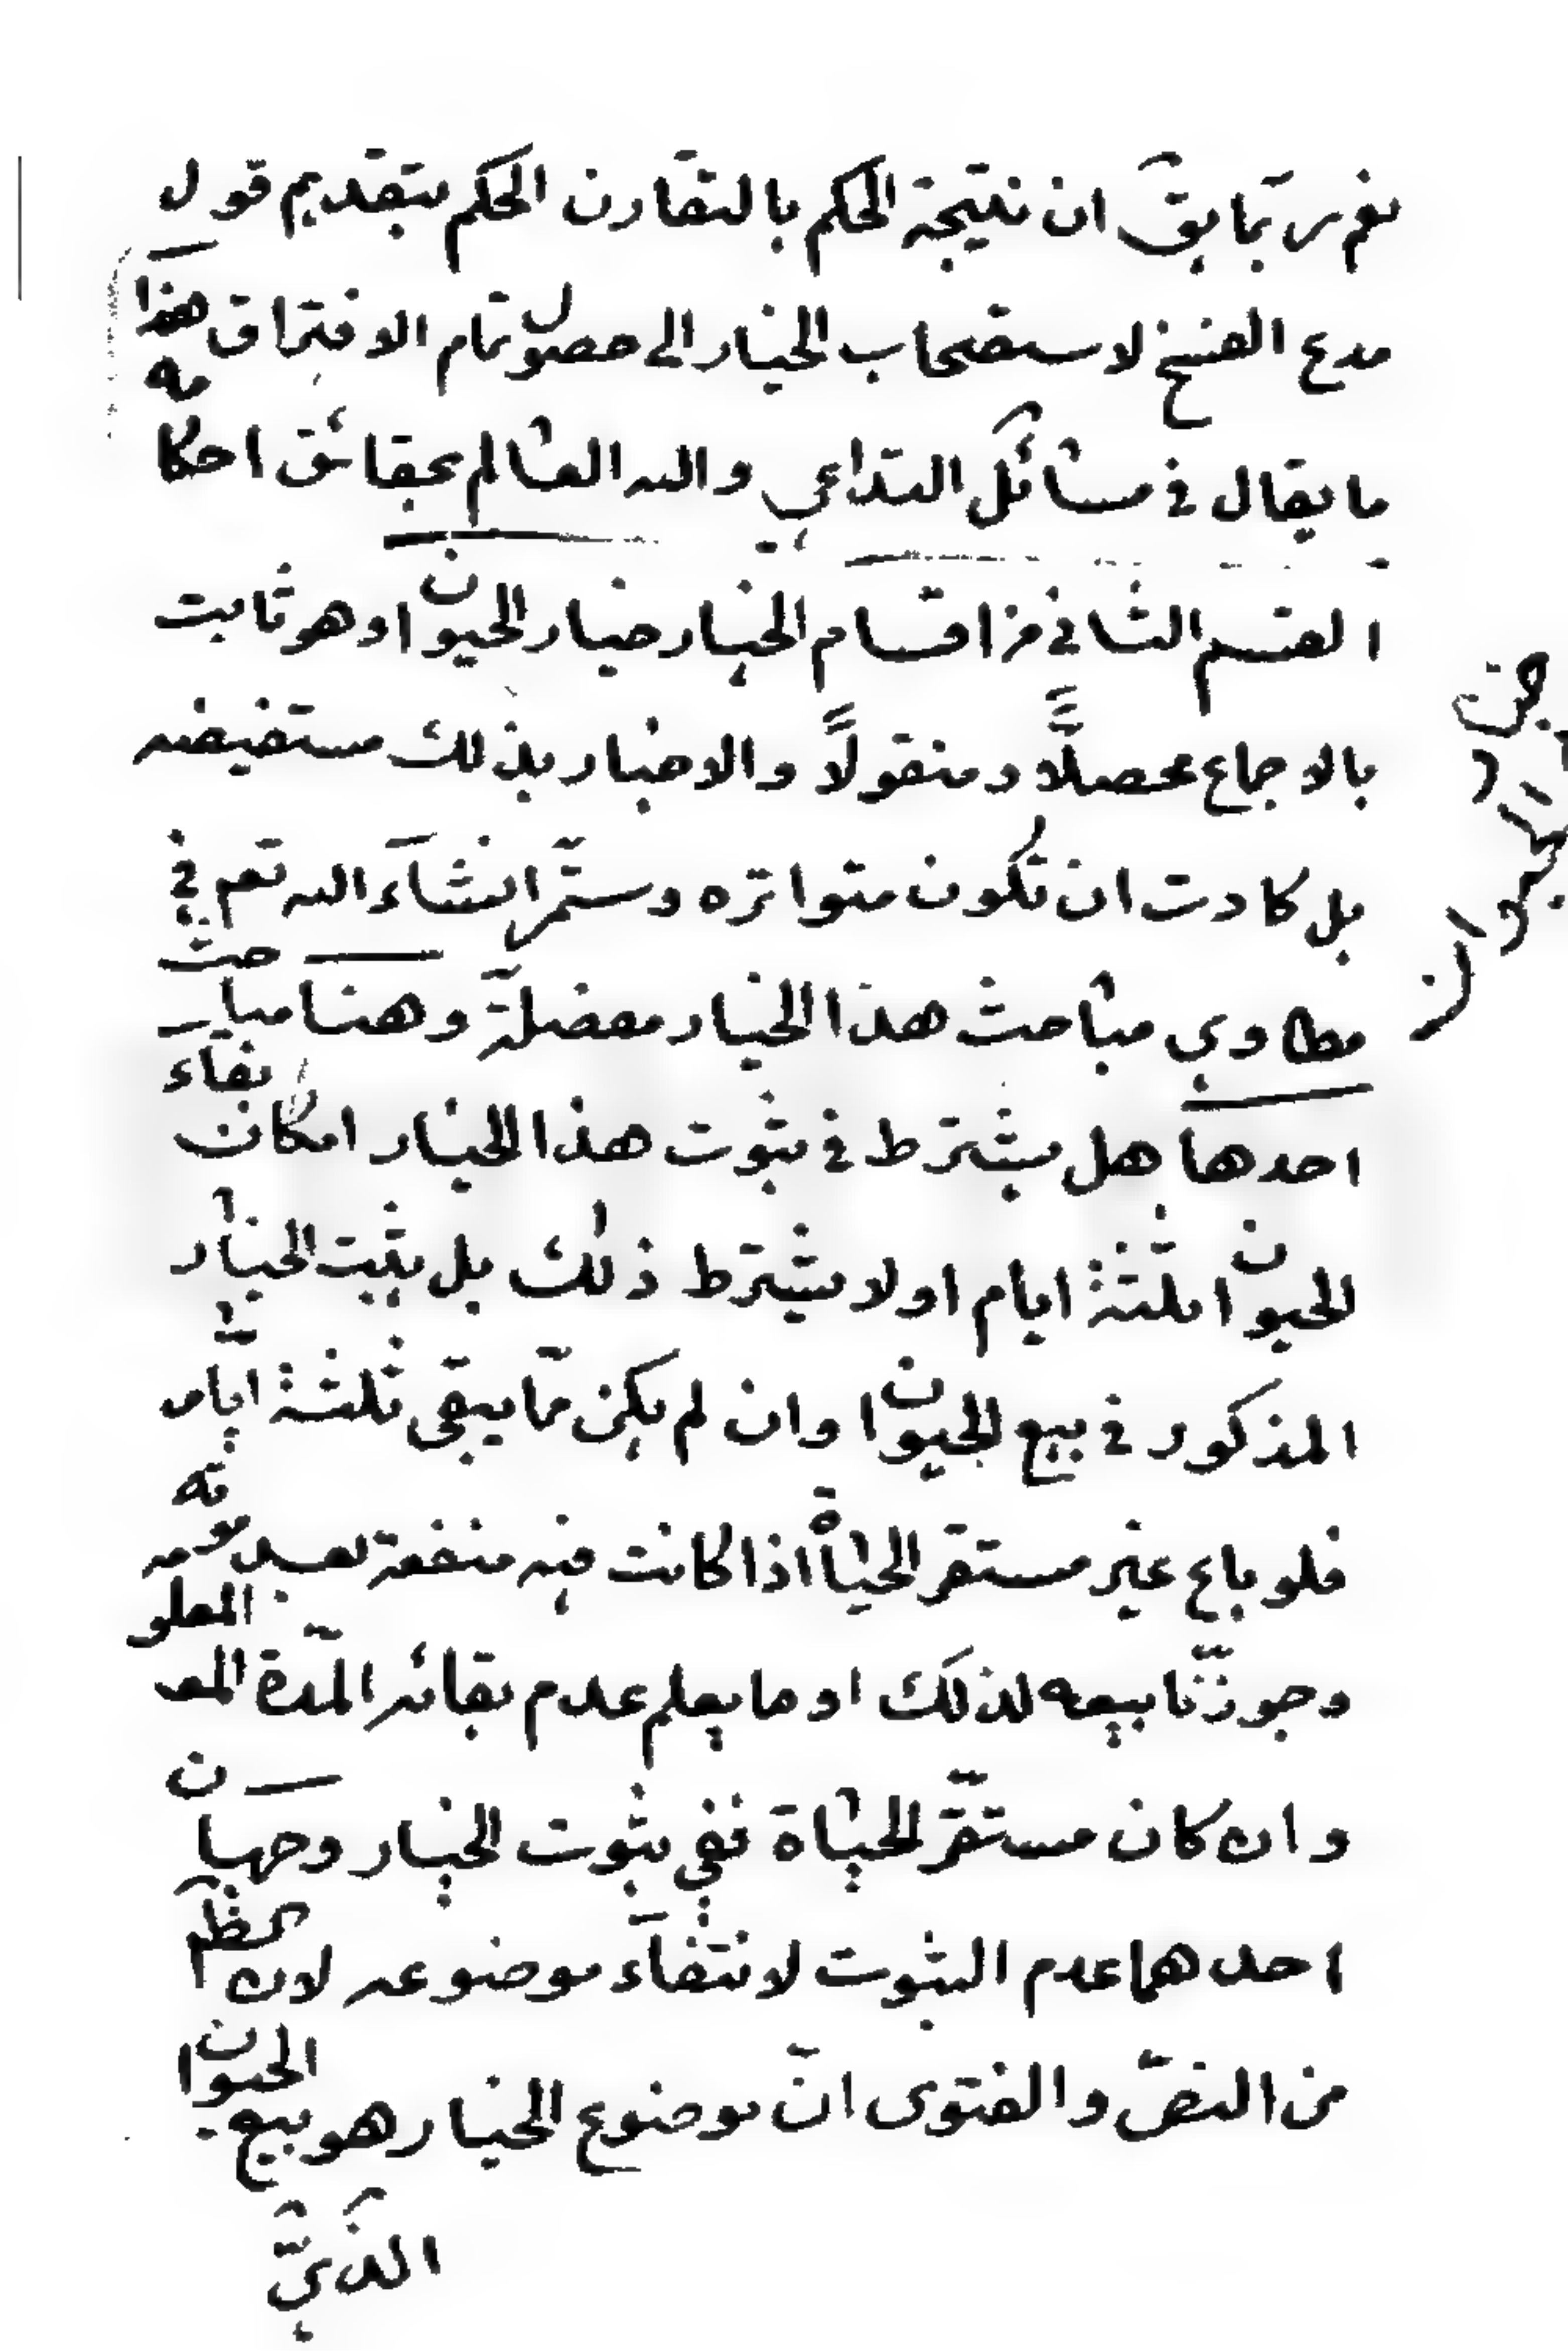 نعم بما سبق ان نتيجة الحكم بالتقارن الحكم بتقديم قول
مدع الفسخ لاستصحاب الخيار الى حصول تمام الافتراق هذا
ما يقال في مسائل التداعي والله العالم بحقائق احكامه
القسم الثاني من اقسام الخيار خيار الحيوان وهو ثابت
بالاجماع محصلًا ومنقولًا والاخبار بذلك مستفيضه
بل كادت ان تكون متواتره وستمرّ انشاء الله تعم في
مطاوي مباحث هذا الخيار مفصلة وهنا مباحث
احدها هل يشترط في ثبوت هذا الخيار امكان بقاء
الحيوان ثلثة ايام او لا يشترط ذلك بل يثبت الخيار
المذكور في بيع الحيوان وان لم يكن ممّا يبقى ثلثة ايّام
فلو باع غير مستقر الحياة اذا كانت فيه منفعة بعد موته
وجوزّنا بيعه لذلك او ما يعلم عدم بقائه المدّة المعلومه
وان كان مستقرّ الحياة ففي ثبوت الخيار وجهان
احدهما عدم الثبوت لانتفاء موضوعه لان الظم
من النصّ والفتوى انّ موضوع الخيار هو بيع الحيوان
الذي
الحيوان